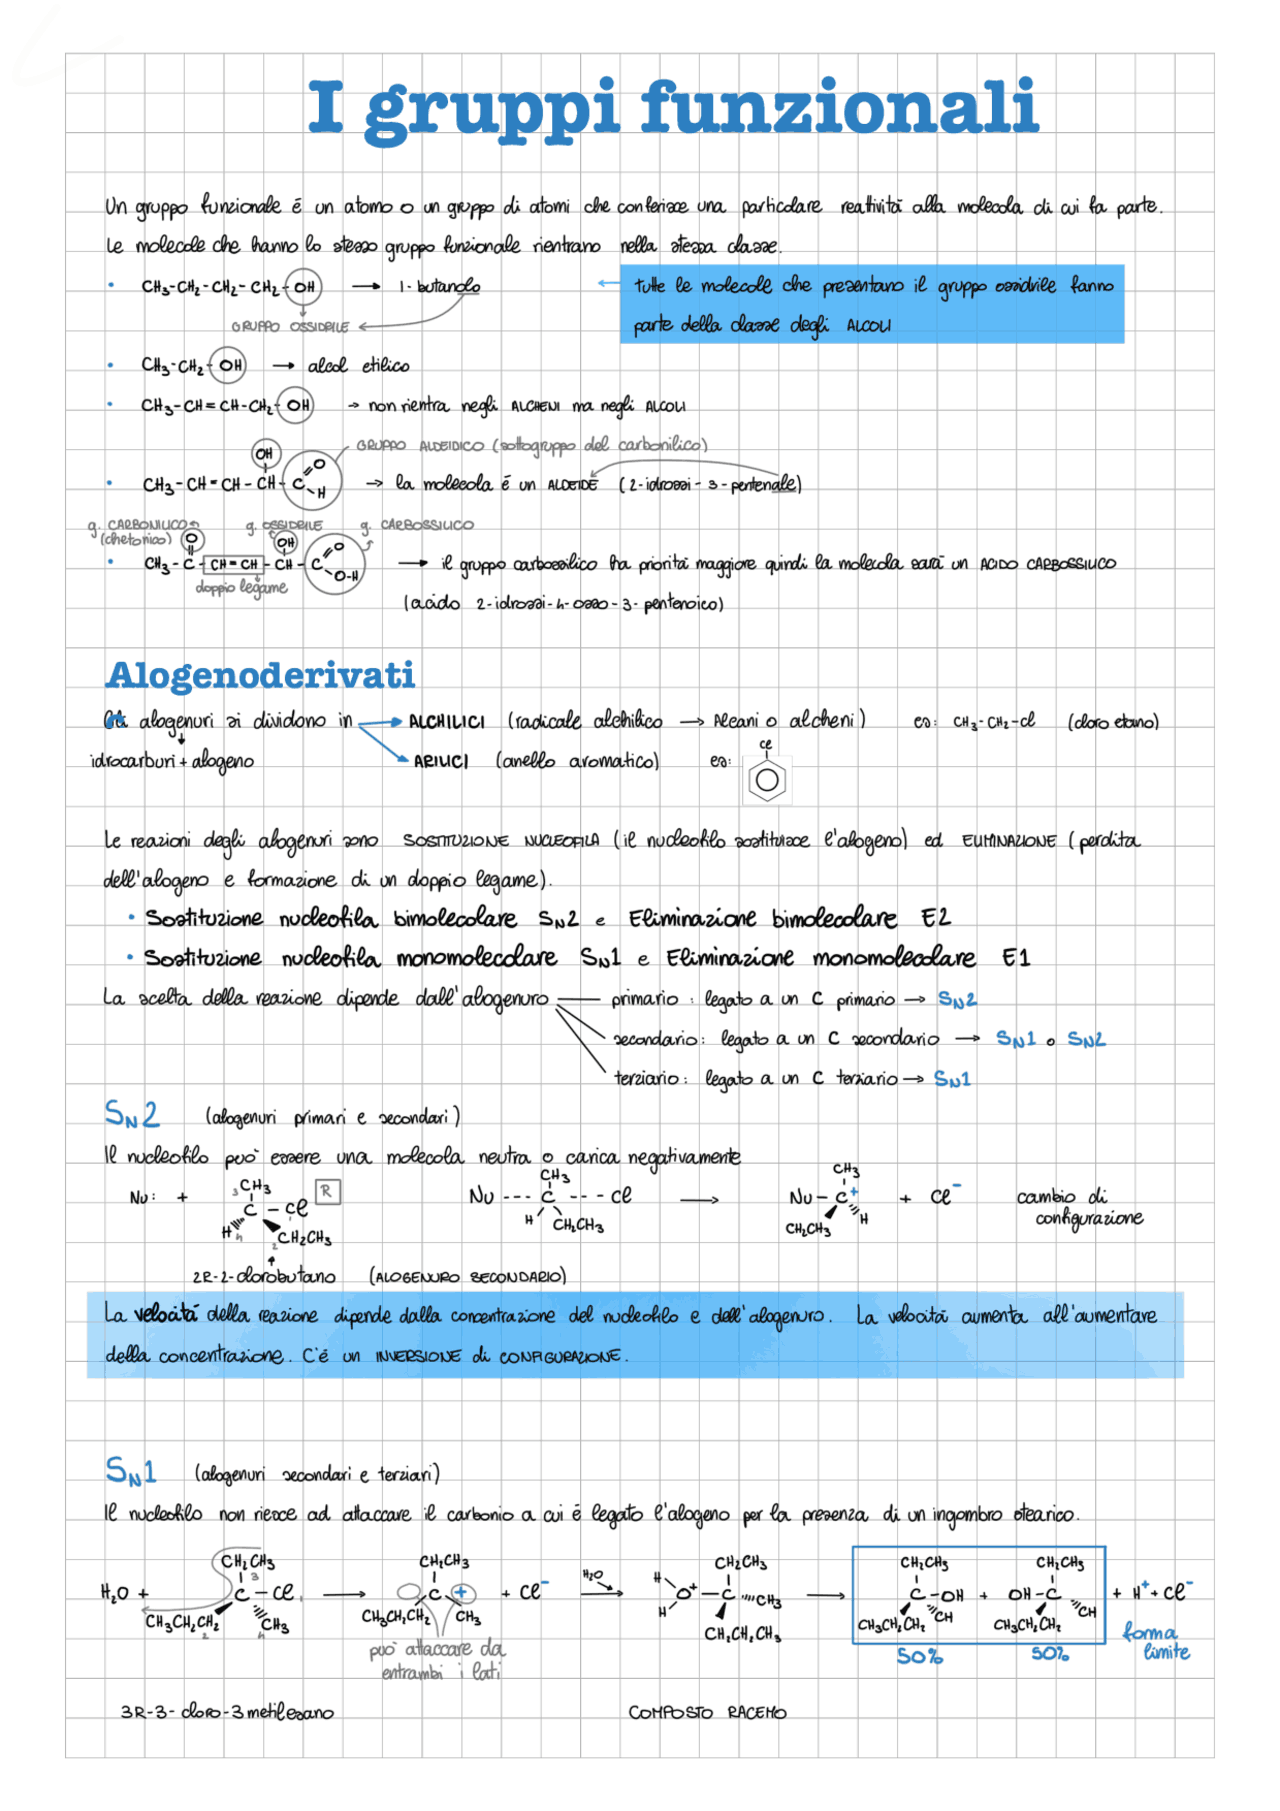 I gruppi funzionali
Un gruppo funzionale é un atomo o un gruppo di atomi che conferisce una particolare reattivitá alla molecola di cui fa parte.
Le molecole che hanno lo stesso gruppo funzionale rientrano nella stessa classe.
• CH3-CH2-CH2-CH2-OH → 1-butanolo
GRUPPO OSSIDRILE
← tutte le molecole che presentano il gruppo ossidrile fanno
parte della classe degli ALCOLI
• CH3-CH2-OH → alcol etilico
• CH3-CH=CH-CH2-OH → non rientra negli ALCHENI ma negli ALCOLI
GRUPPO ALDEIDICO (sottogruppo del carbonilico)
OH O
• CH3-CH=CH-CH-C-H → la molecola é un ALDEIDE (2-idrossi-3-pentenale)
g. CARBONILICO (chetonico) g. OSSIDRILE g. CARBOSSILICO
O OH O
• CH3-C-CH=CH-CH-C-O-H → il gruppo carbossilico ha prioritá maggiore quindi la molecola sará un ACIDO CARBOSSILICO
doppio legame
(acido 2-idrossi-4-osso-3-pentenoico)
Alogenoderivati
Gli alogenuri si dividono in → ALCHILICI (radicale alchilico → Alcani o alcheni) es: CH3-CH2-Cl (cloro etano)
idrocarburi + alogeno → ARILICI (anello aromatico) es: Cl
Le reazioni degli alogenuri sono SOSTITUZIONE NUCLEOFILA (il nucleofilo sostituisce l'alogeno) ed ELIMINAZIONE (perdita
dell'alogeno e formazione di un doppio legame).
• Sostituzione nucleofila bimolecolare SN2 e Eliminazione bimolecolare E2
• Sostituzione nucleofila monomolecolare SN1 e Eliminazione monomolecolare E1
La scelta della reazione dipende dall'alogenuro — primario: legato a un C primario → SN2
secondario: legato a un C secondario → SN1 o SN2
terziario: legato a un C terziario → SN1
SN2 (alogenuri primari e secondari)
Il nucleofilo puó essere una molecola neutra o carica negativamente
3 CH3 R CH3 CH3
Nu: + C - Cl Nu --- C --- Cl → Nu - C+ + Cl- cambio di
configurazione
H 4 2 CH2CH3 H CH2CH3 CH2CH3 H
2R-2-clorobutano (ALOGENURO SECONDARIO)
La velocitá della reazione dipende dalla concentrazione del nucleofilo e dell'alogenuro. La velocitá aumenta all'aumentare
della concentrazione. C'é un INVERSIONE di CONFIGURAZIONE.
SN1 (alogenuri secondari e terziari)
Il nucleofilo non riesce ad attaccare il carbonio a cui é legato l'alogeno per la presenza di un ingombro sterico.
CH2CH3 CH2CH3 CH2CH3 CH2CH3 CH2CH3
H2O + 3 C - Cl 1 → C + + Cl- H2O → H H O+ - C CH3 → C - OH + OH - C + H+ + Cl-
CH3CH2CH2 2 CH3 4 CH3CH2CH2 CH3 CH2CH2CH3 CH3CH2CH2 CH CH3CH2CH2 CH forma
limite
puó attaccare da
entrambi i lati
50% 50%
3R-3-cloro-3metilesano COMPOSTO RACEMO